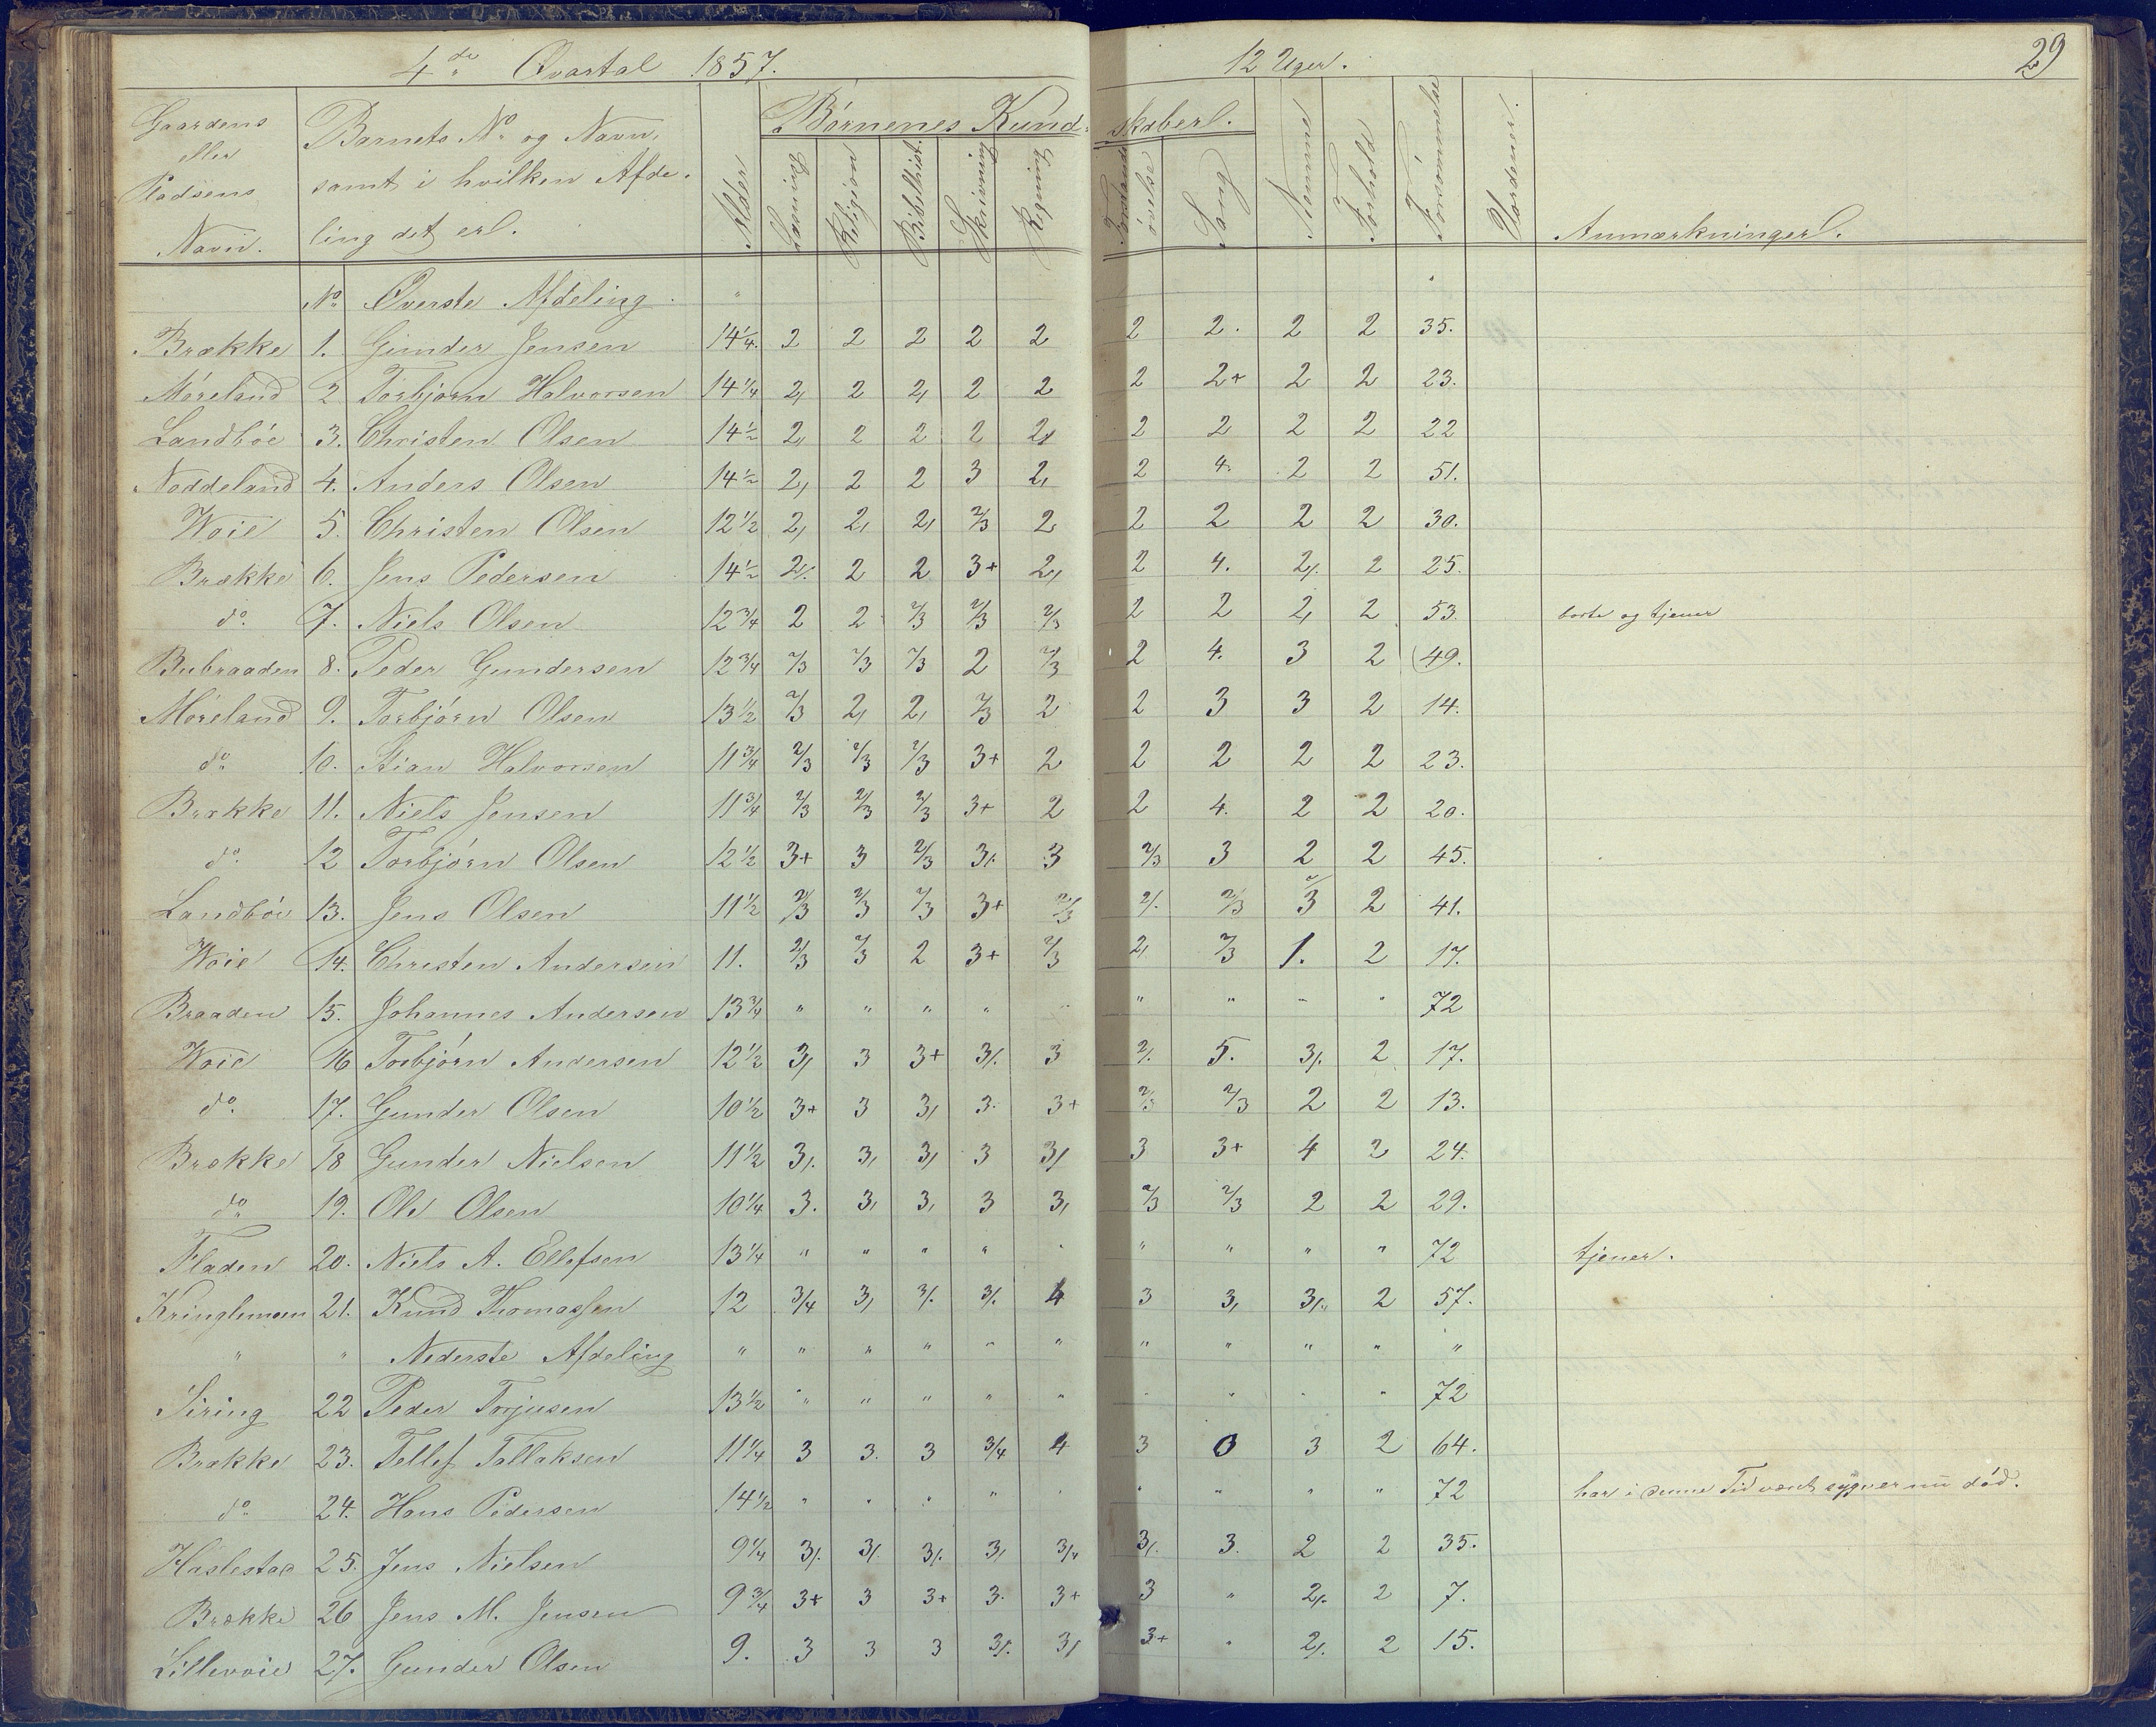 4de Qvartal 1857. 12 Uger. 29
Gaardens eller Pladsens Navn.
Barnets No og Navn, samt i hvilken Afdeling det er.
Alder
Børnenes Kundskaber.
Læsning Religion Bibelhist. Skrivning Regning Forstandsøvelse Sang Nemme Forhold Forsømmelse Vurderer. Anmærkninger.
No Øverste Afdeling. "
Brække 1. Gunder Jensen 14 1/4. 2 2 2 2 2 2 2. 2 2 35.
Møreland 2 Torbjørn Halvorsen 14 1/4 2, 2 2, 2 2 2 2+ 2 2 23.
Landbøe 3. Christen Olsen 14 1/2 2, 2 2 2 2, 2 2 2 2 22
Noddeland 4. Anders Olsen 14 1/2 2, 2 2 3 2, 2 4. 2 2 51.
Woie 5. Christen Olsen 12 1/2 2, 2, 2, 2/3 2 2 2 2 2 30.
Brække 6. Jens Pedersen 14 1/2 2/. 2 2 3+ 2, 2 4. 2/. 2 25.
do. 7. Niels Olsen 12 3/4 2 2 2/3 2/3 2/3 2 2 2, 2 53. borte og tjener
Bubraaden 8. Peder Gundersen 12 3/4 2/3 2/3 2/3 2 2/3 2 4. 3 2 49.
Møreland 9. Torbjørn Olsen 13 1/2 2/3 2, 2, 2/3 2 2 3 3 2 14.
do 10. Stian Halvorsen 11 3/4 2/3 2/3 2/3 3+ 2 2 2 2 2 23.
Brække 11. Niels Jensen 11 3/4 2/3 2/3 2/3 3+ 2 2 4. 2 2 20.
do. 12 Torbjørn Olsen 12 1/2 3+ 3 2/3 3/. 3 2/3 3 2 2 45.
Landbøe 13. Jens Olsen 11 1/2 2/3 2/3 2/3 3+ 2/3 2/. 2/3 2/3 2 41.
Woie 14. Christen Andersen 11. 2/3 2/3 2 3+ 2/3 2, 2/3 1. 2 17.
Braaden 15. Johannes Andersen 13 3/4 " " " " " " " " " 72
Woie 16 Torbjørn Andersen 12 1/2 3, 3 3+ 3/. 3 2/. 5. 3/. 2 17.
do. 17. Gunder Olsen 10 1/2 3+ 3 3, 3. 3+ 2/3 2/3 2 2 13.
Brække 18 Gunder Nielsen 11 1/2 3/. 3, 3, 3 3, 3 3+ 4 2 24.
do 19. Ole Olsen 10 1/4 3. 3, 3, 3 3, 2/3 2/3 2 2 29.
Fladen 20. Niels A. Ellefsen 13 1/4 " " " " " " " " " 72 tjener.
Kringlemoen 21. Knud Thomassen 12 3/4 3, 3/. 3/. 4 3 3, 3/. 2 57.
" " Nederste Afdeling " " " " " " " " " " "
Siring 22 Peder Torjusen 13 1/2 " " " " " " " " " 72
Brække 23. Tellef Tallaksen 11 1/4 3 3. 3 3/4 4 3 0 3 2 64.
do 24. Hans Pedersen 14 1/2 " " " " " " " " " 72 har i denne Tid været syg, er nu død.
Haslestad 25. Jens Nielsen 9 1/4 3/. 3/. 3/. 3, 3/4 3/. 3. 2 2 35.
Brække 26 Jens M. Jensen 9 3/4 3+ 3 3+ 3. 3+ 3 " 2/. 2 7.
Lillevoie 27. Gunder Olsen 9. 3 3 3 3/. 3, 3+ " 2/. 2 15.